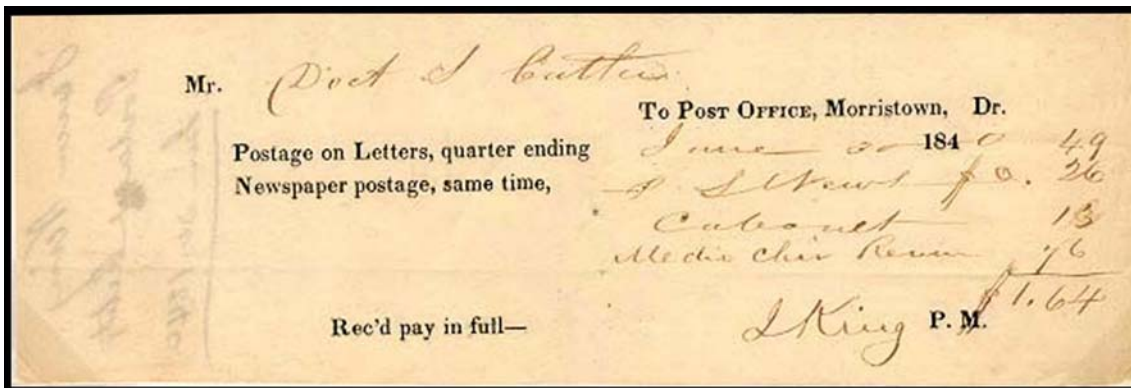 Mr. Doct S Cutler
To POST OFFICE, Morristown, Dr.
Postage on Letters, quarter ending June 30 1840 49
Newspaper postage, same time, News $0. 26
Cabonet 13
Medico Chir Review 76
$1.64
Rec'd pay in full— J King P. M.